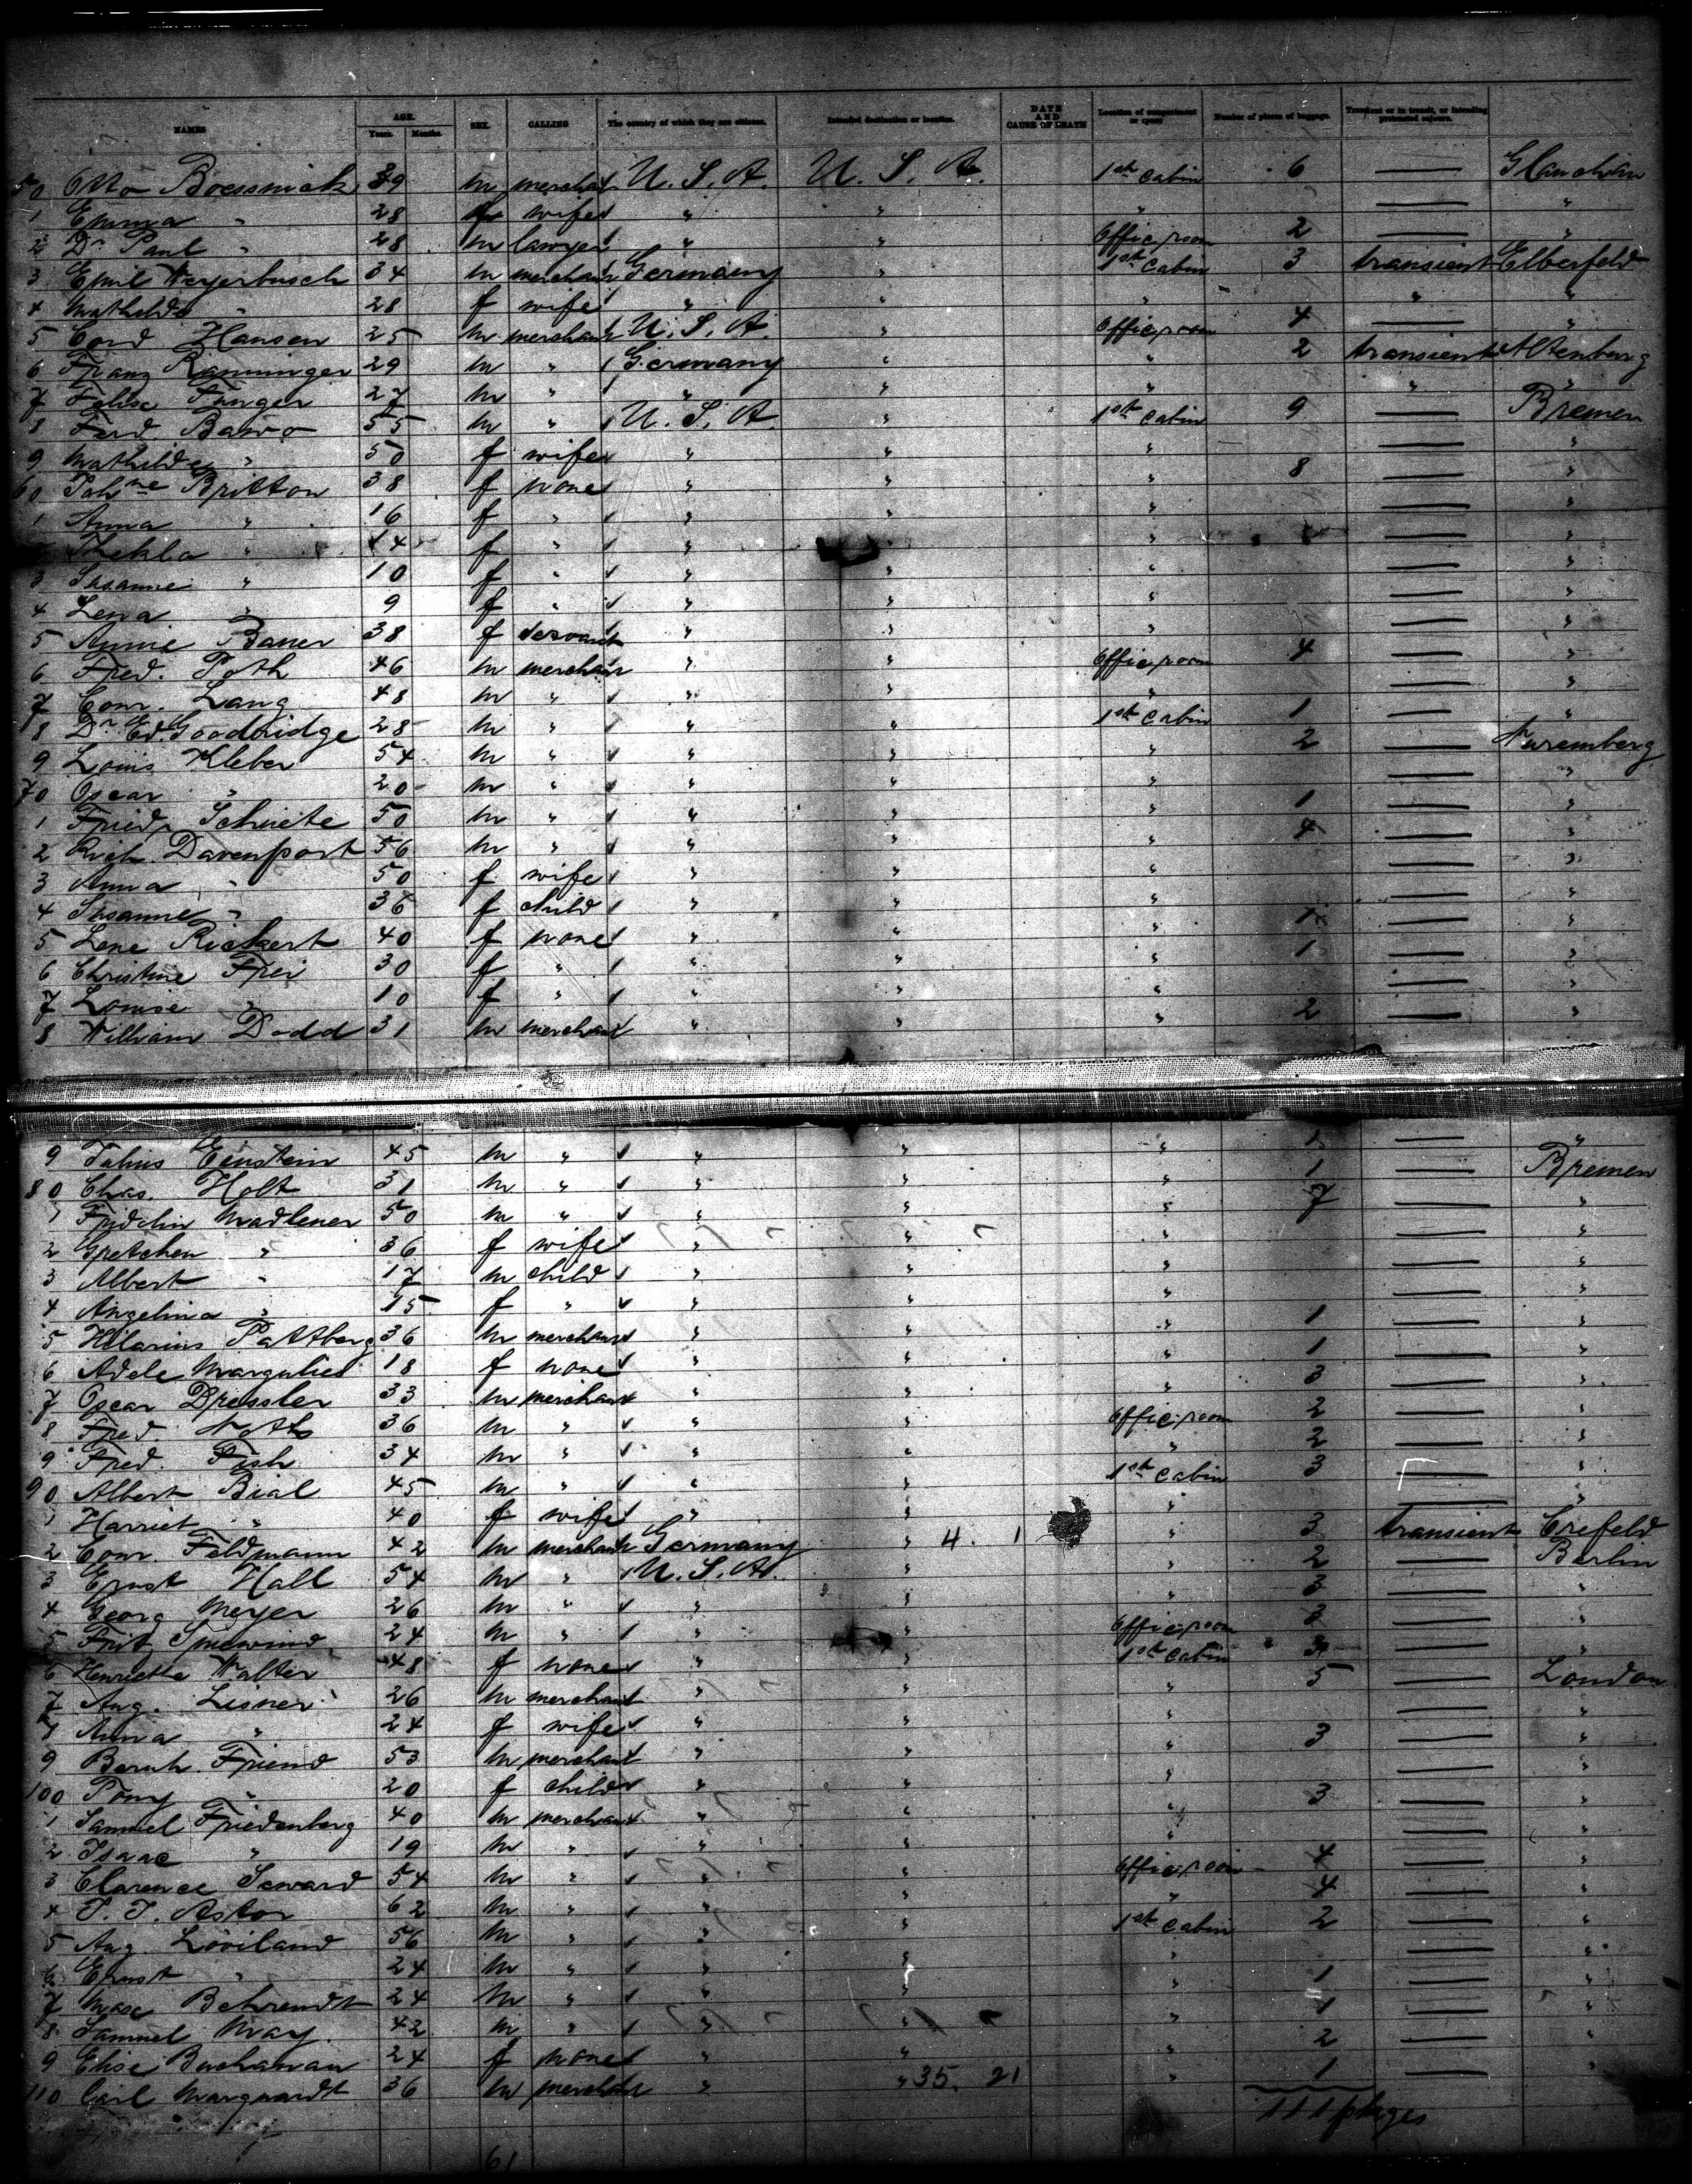 NAMES AGE. Years. Months. SEX. CALLING The country of which they are citizens. Intended destination or location. DATE AND CAUSE OF DEATH Location of compartment or space Number of pieces of baggage. Transient or in transit, or intending protracted sojourn.
50 Otto 39 m merchant U. S. A. U. S. A. 1st cabin 6 —
1 Emma " 28 f wife " " " — "
2 Dr Paul " 28 m lawyer " " Offic. room 2 — "
3 Emil Weyerbusch 34 m merchant Germany " 1st Cabin 3 transient Elberfeld
4 Mathilde " 28 f wife " " " " "
5 Cord Hansen 25 m merchant U. S. A. " Offic. room 4 — "
6 Franz Ranninger 29 m " Germany " " 2 transient Altenberg
7 Felix Funger 27 m " " " " " "
8 Ferd. Bawo 55 m " U. S. A. " 1st cabin 9 — Bremen
9 Mathilde " 50 f wife " " " — "
60 Johne Britton 38 f none " " " 8 — "
1 Anna " 16 f " " " " — "
2 Thekla " 14 f " " " " — "
3 Susanne " 10 f " " " " — "
4 Lena " 9 f " " " " — "
5 Annie Bauer 38 f servant " " " — "
6 Fred. Poth 46 m merchant " " Offic. room 4 — "
7 Conr. Lang 48 m " " " " — "
8 Dr Ed. Goodridge 28 m " " " 1st cabin 1 — "
9 Louis Kleber 54 m " " " " 2 — Nuremberg
70 Oscar " 20 m " " " " — "
1 Friedr Schuete 50 m " " " " 1 — "
2 Rich. Davenport 56 m " " " " 4 — "
3 Anna " 50 f wife " " " — "
4 Susanne " 36 f child " " " — "
5 Lene Rickert 40 f none " " " 1 — "
6 Christine Frei 30 f " " " " 1 — "
7 Louise " 10 f " " " " — "
8 William Dodd 31 m merchant " " " 2 — "
9 Julius Einstein 45 m " " " " 1 — "
80 Chas. Holt 31 m " " " " 1 — Bremen
1 Fridolin Madlener 50 m " " " " 7 — "
2 Gretchen " 36 f wife " " " — "
3 Albert " 17 m child " " " — "
4 Angelina " 15 f " " " " — "
5 Hilarius Pattberg 36 m merchant " " " 1 — "
6 Adele Margulies 18 f none " " " 1 — "
7 Oscar Dressler 33 m merchant " " " 3 — "
8 Fred. Noth 36 m " " " Offic. room 2 — "
9 Fred. Fish 34 m " " " " 2 — "
90 Albert Bial 45 m " " " 1st cabin 3 — "
1 Harriet " 40 f wife " " " — "
2 Conr. Feldmann 42 m merchant Germany " 4. 1 " 3 transient Crefeld
3 Ernst Hall 54 m " U. S. A. " " 2 — Berlin
4 Georg Meyer 26 m " " " " 3 — "
5 24 m " " " Offic. room 3 — "
6 Henriette Walter 48 f none " " 1st cabin 3 — "
7 Aug. Lisner 26 m merchant " " " 5 — London
8 Anna " 24 f wife " " " — "
9 Bernh. Friend 53 m merchant " " " 3 — "
100 Tony " 20 f child " " " — "
1 Samuel Friedenberg 40 m merchant " " " 3 — "
2 Isaac " 19 m " " " " — "
3 Clarence Seward 54 m " " " Offic. room 4 — "
4 J. J. Astor 62 m " " " " 4 — "
5 Aug. Loviland 56 m " " " 1st cabin 2 — "
6 Ernst " 24 m " " " " — "
7 Max Behrendt 24 m " " " " 1 — "
8 Samuel May. 42 m " " " " 1 — "
9 Elise Buchanan 24 f none " " " 2 — "
110 Carl Marquardt 36 m merchant " " 35. 21 " 1 — "
111 pkges
61